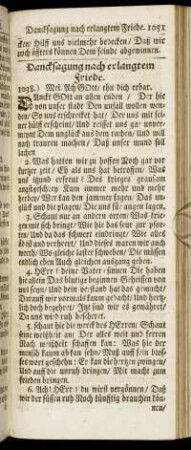 Dancksagung nach erlangtem Friede. 1051
cken/ Hilff uns vielmehr bedecken/ Daß wir
noch öffters können Dem feinde abgewinnen.
Dancksagung nach erlangtem
Friede.
1038.) Mel. Ach GOtt, thu dich erbar.
DAnckt GOtt an allen enden/ Der hie
von unser stadt Den unfall wollen wen-
den/ So uns erschrecket hat/ Der uns mit sel-
ner hülff erscheint/ Und reisset uns gar unver-
Dem unglück aus dem rachen/ Und will
nach trauren machen/ Daß unser mund soll
lachen
2. Was hatten wir zu hoffen Noch gar vor
kurtzer zeit/ Eh als uns hat betroffen/ Was
uns iezund erfreut? Des krieges
Kam immer mehr und mehr
herbey/ Wer kan den jammer sagen/ Das un-
glück und die plagen/ Die uns für augen lagen.
3. Schaut nur an andern orten/ Was krie-
gen mit sich bringt/ Wie hie das feur zur pfor-
ten/ Und da das schwerdt eindringt/ Wie alles
ödt und verheert/ Und dieses waren wir auch
werth/ Wo gleiche laster schweben/ Die müssen
endlich eben Auch gleichen ausgang geben.
4. HErr! deine Vater-sinnen Die haben
hie allein Das blutige beginnen Geheissen von
uns seyn/ Und dein verstand hat das gemacht/
Darauf wir vormals kaum gedacht/ Und hertz-
lich doch begehret/ Ist sind wir es gewähret/
Da uns wird ruh bescheret.
5. schaut hie die werck des HErren; Schaut
seine weisheit an/ Der alles weit und ferren
Nach weisheit schaffen kan: Was hie der
mensch kaum ah kan sehn/ Muß auff sein blos-
ses wort geschehn: Er kan die hertzen zwingen/
Und uns auf ruhe bringen/ Mit macht zum
frieden dringen.
6. Ach! HErr! du wirst vergönnen/ Daß
wir der süssen ruh Noch künfftig brauchen kön-
nen/